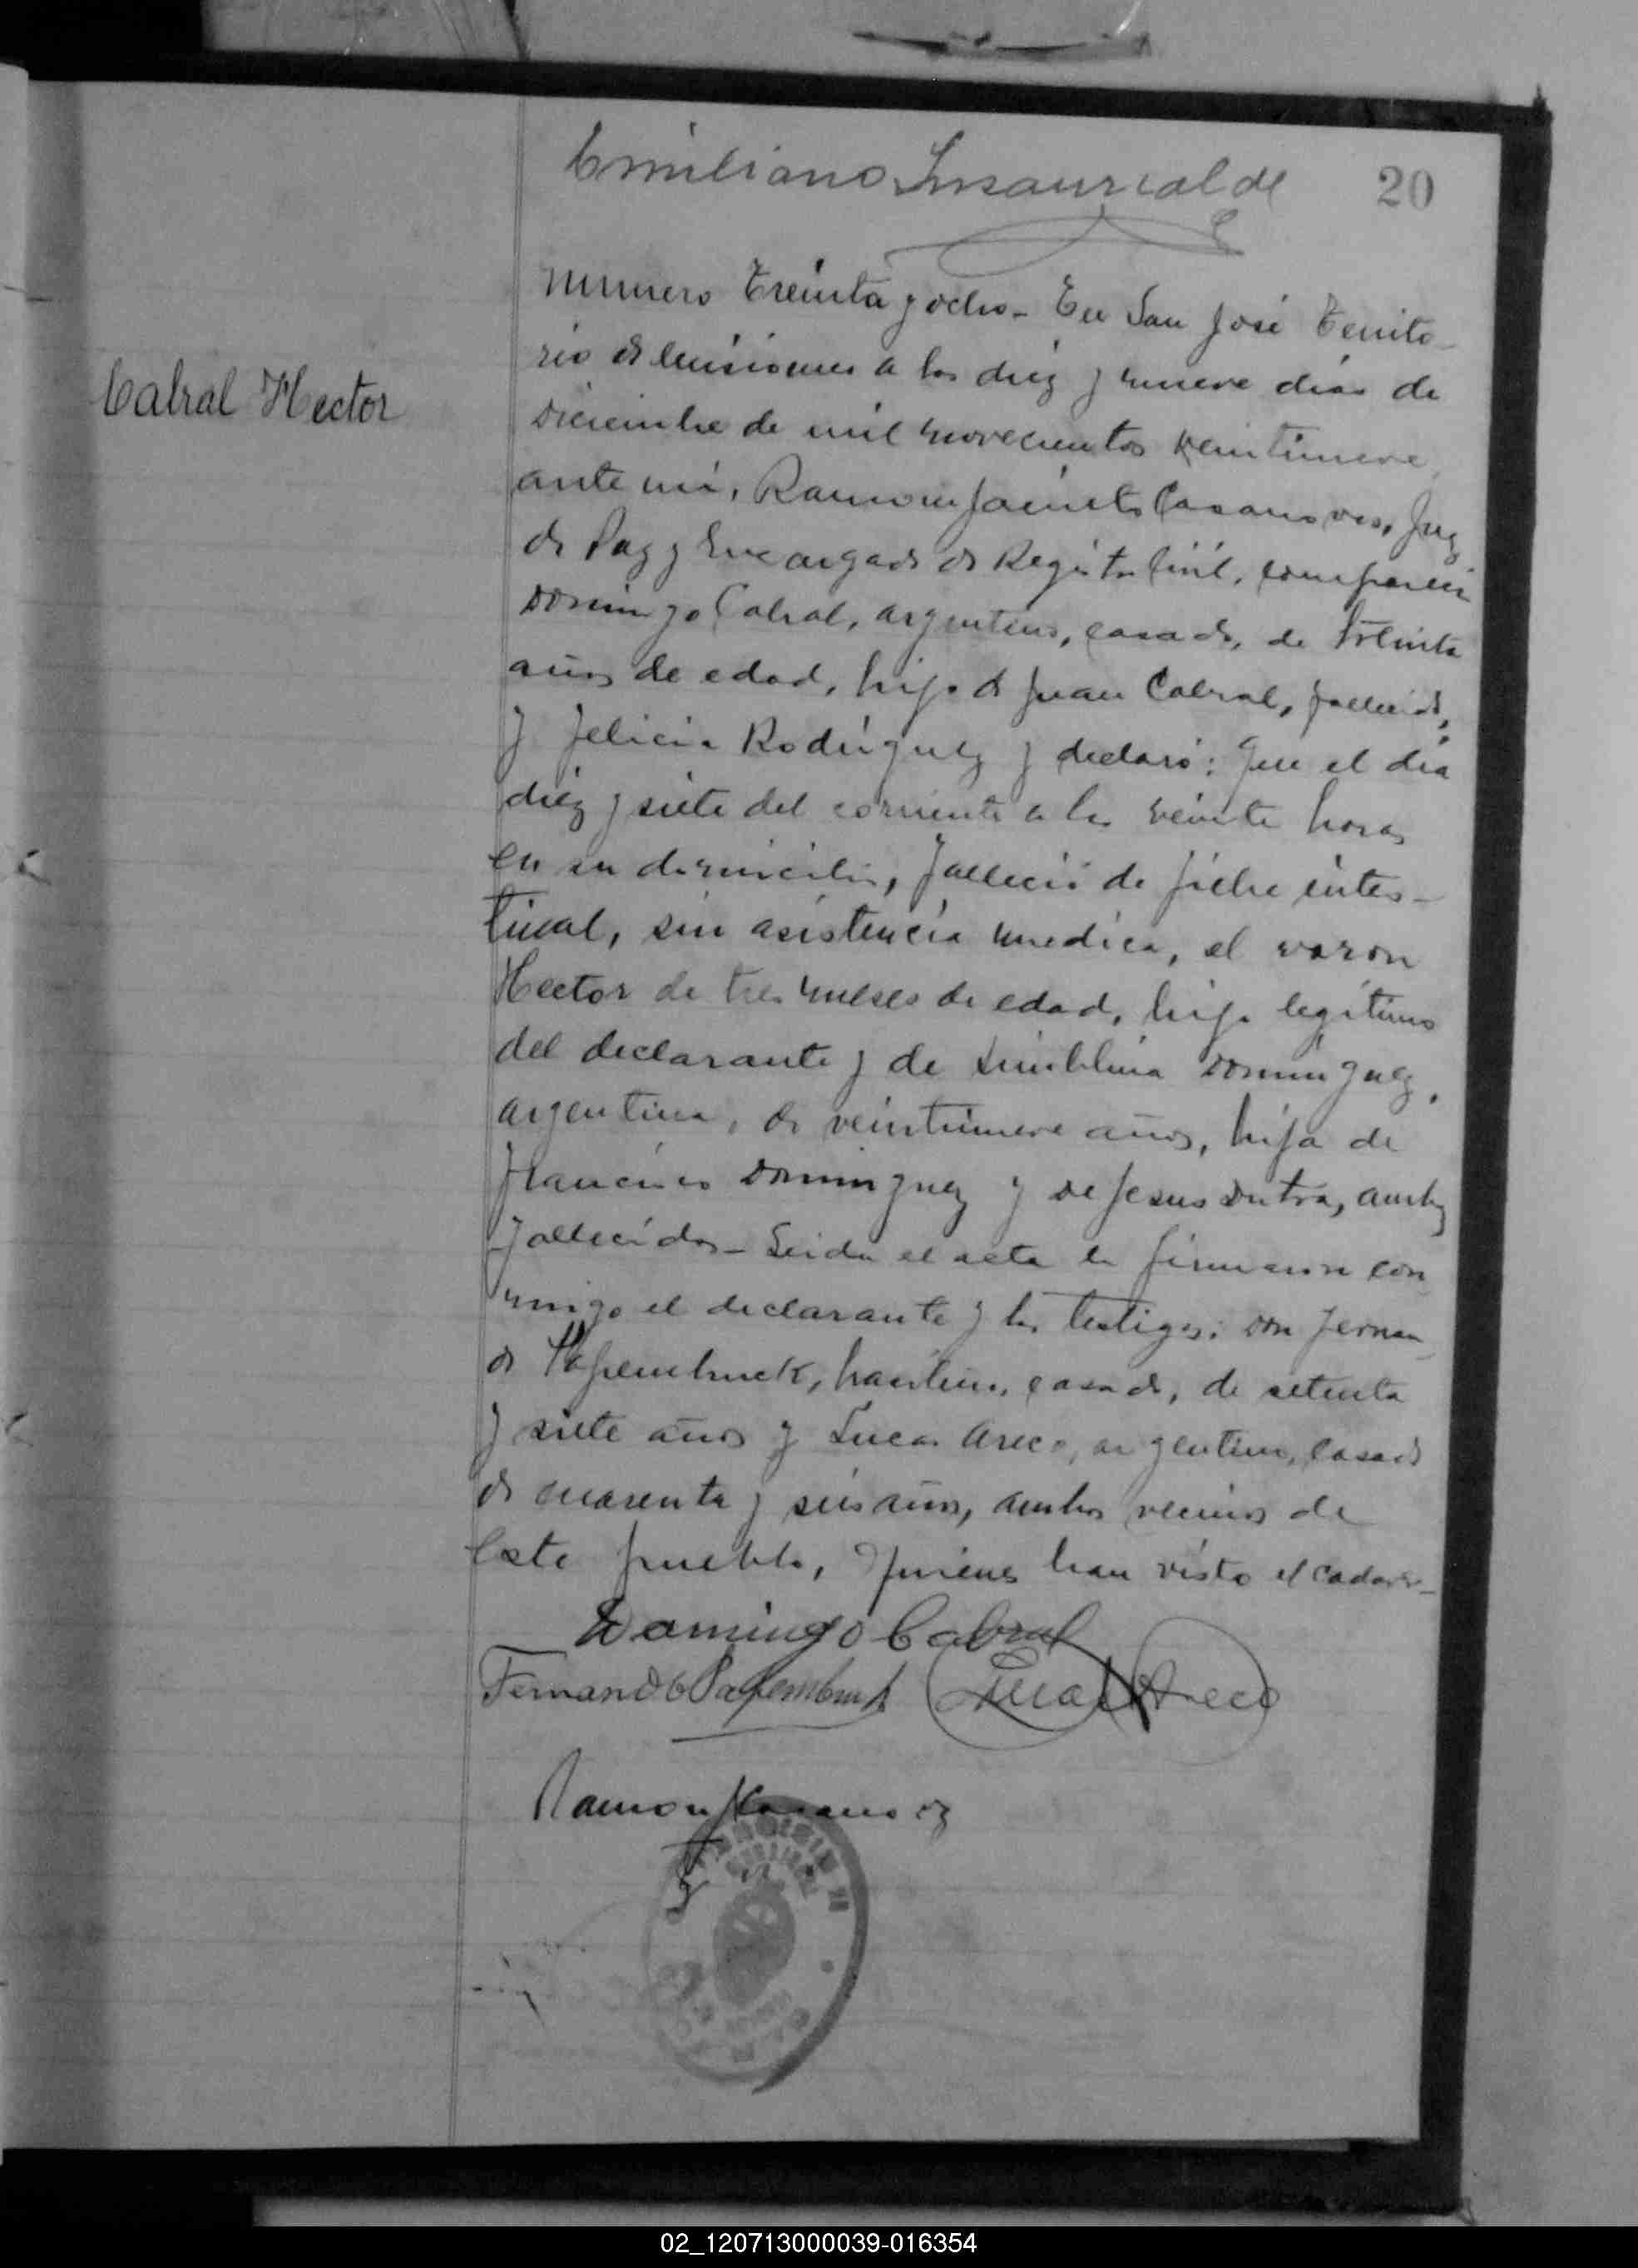 Emiliano Insaurralde
20
Cabral Hector
Numero Treinta y ocho - En San José Territo-
rio de Misiones a los diez y nueve dias de
Diciembre de mil novecientos veintinueve,
ante mi, Ramon Jacinto Casanovas, Juez
de Paz y Encargado de Registro Civil, compareció
Domingo Cabral, argentino, casado, de treinta
años de edad, hijo de Juan Cabral, fallecido,
y Felicia Rodriguez y declaró: Que el día
diez y siete del corriente a las veinte horas
en su domicilio, falleció de fiebre intes-
tinal, sin asistencia medica, el varon
Hector de tres meses de edad, hijo legitimo
del declarante y de Dominguez,
argentina, de veintinueve años, hija de
Francisco Dominguez y de Jesus Dutra, ambos
fallecidos - Leida el acta la firmaron con
migo el declarante y los testigos: don Fernan
do Papembruck, casado, de setenta
y siete años y Lucas Areco, argentino, casado
de cuarenta y seis años, ambos vecinos de
este pueblo, quienes han visto el cadaver-
Domingo Cabral
Fernando Papembruk Lucas Areco
Ramon J Casanovas
02_120713000039-016354